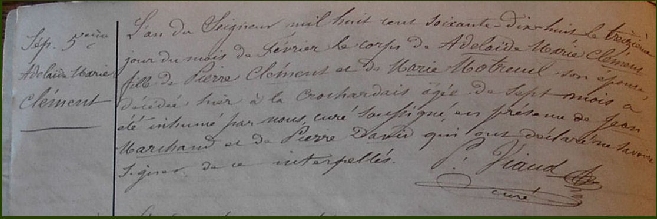 Sep. 5ème
Adelaïde Marie
Clément
L'an du Seigneur mil huit cent soixante-dix-huit le troisième
jour du mois de Février le corps de Adelaïde Marie Clément
fille de Pierre Clément et de Marie Motreuil son épouse
décédée hier à la Crochardais agée de Sept mois a
été inhumé par nous, curé soussigné, en présence de Jean
Marchand et de Pierre David qui ont déclaré ne savoir
signer de ce interpellés.
P. Viaud
curé